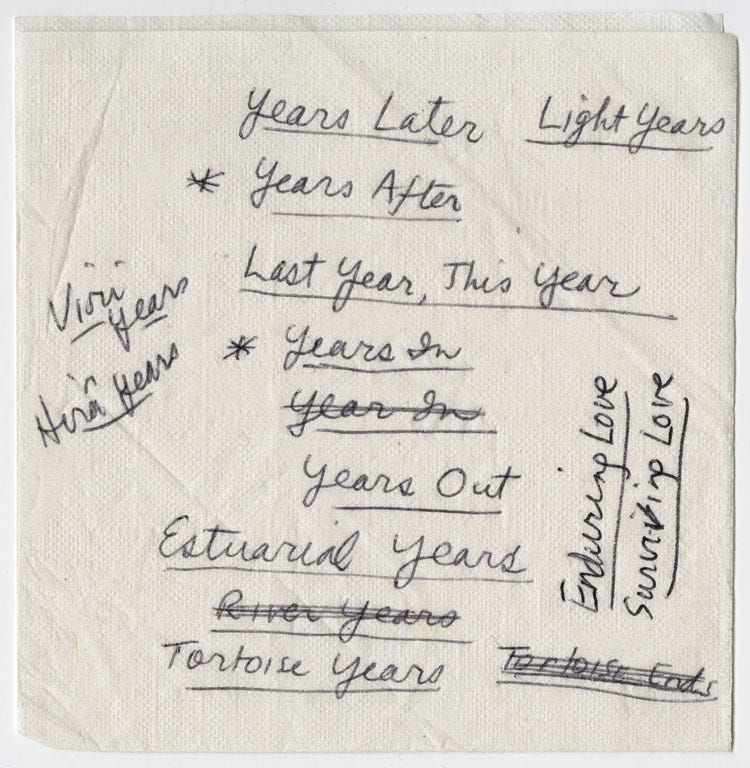 Years Later
Light Years
* Years After
Last Year, This Year
Years
* Years In
Years
Year In
Years Out
Enduring Love
Surviving Love
Estuarial Years
River Years
Tortoise Years
Tortoise